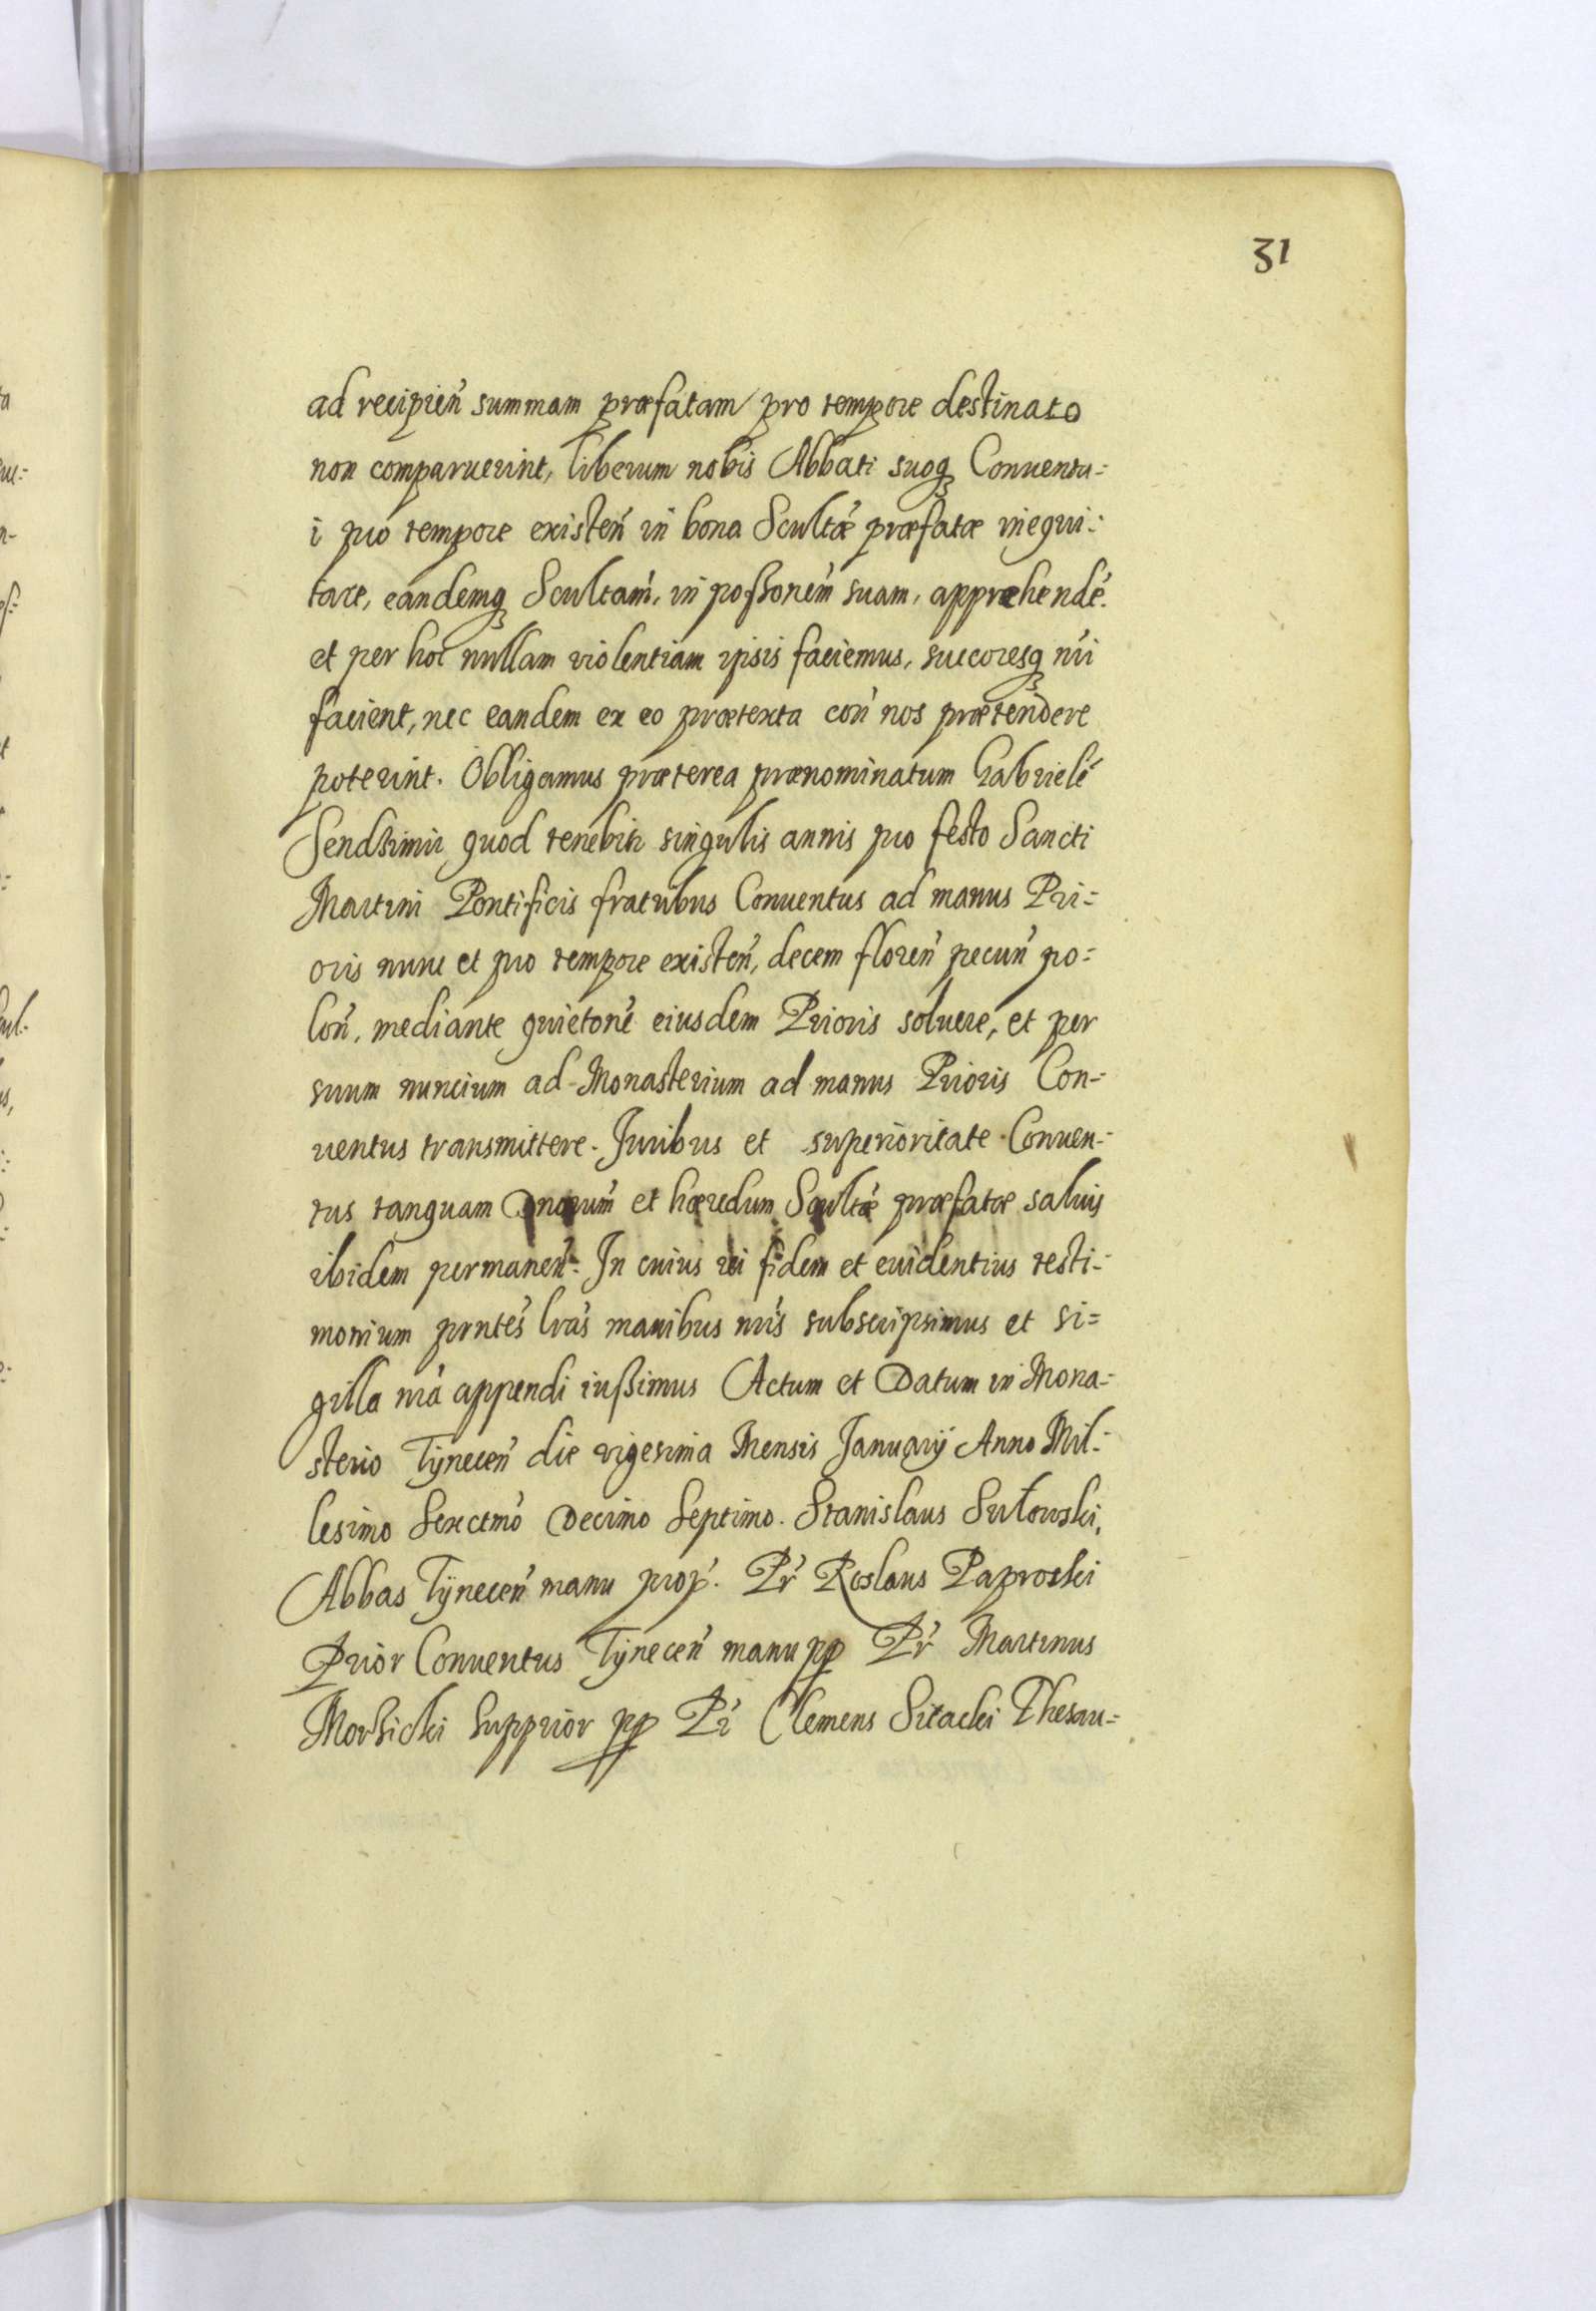 31
ad recipień summam præfatam pro tempore destinato
non comparuerint, liberum nobis Abbati suoq₃ Conuentu-
i pro tempore existeń in bona Scultæ præfatæ inequi-
tare, eandemq₃ Scultam, in poßonem suam, apprehendé.
et per hoc nullam violentiam ipsis faciemus, succoresq₃ nri
facient, nec eandem ex eo prætexta coń nos prætendere
poterint. Obligamus præterea prænominatum Gabrielé
Sendzimir quod tenebitr singulis annis pro festo Sancti
Martini Pontificis fratribus Conuentus ad manus Pri=
oris nunc et pro tempore existeń, decem floreń pecuń po=
loń, mediante quietoné eiusdem Prioris soluere, et per
suum nuncium ad Monasterium ad manus Prioris Con-
uentus transmittere. Juribus et superioritate Conuen-
tus tanquam Dnorum et hæredum Scultæ præfatæ saluis
ibidem permaneń. In cuius rei fidem et euidentius testi-
monium prntes lras manibus nris subscripsimus et si=
gilla nra appendi iußimus Actum et Datum in Mona-
sterio Tÿneceń die vigesima Mensis Januarÿ Anno Mil-
lesimo Sexctmo Decimo Septimo. Stanislaus Sułowski,
Abbas Tÿneceń manu prop. Pr Roslaus Paprocki
Prior Conuentus Tÿneceń manu pp Pr Martinus
Morsicki Supprior pp Pr Clemens Sitacki Thesau=